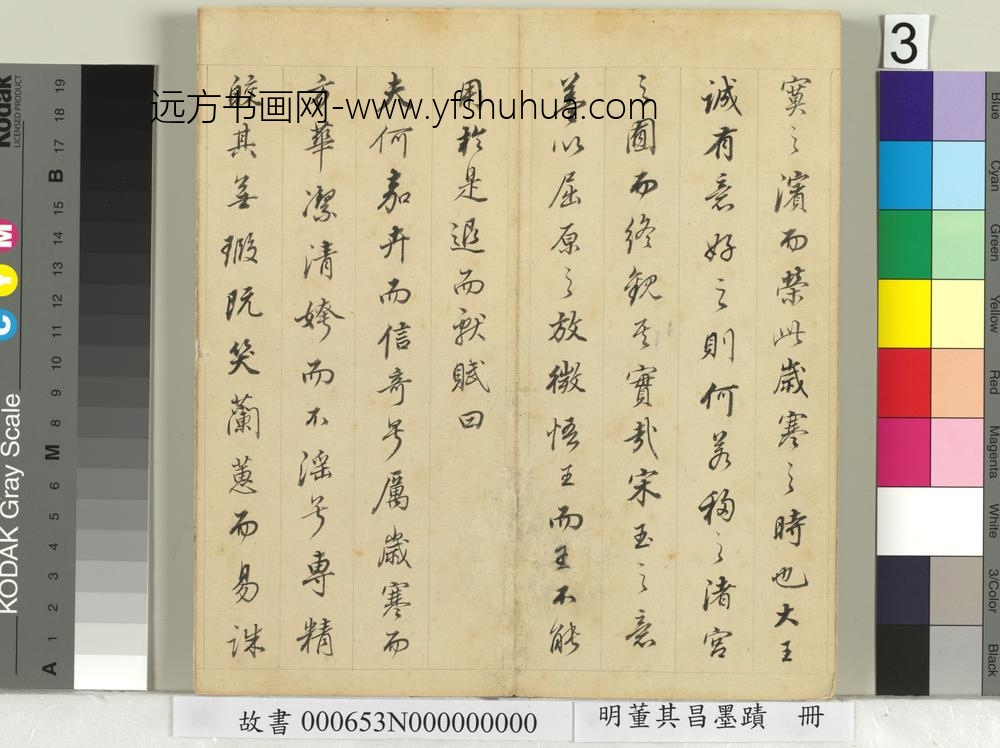 寞之濱而榮此歲寒之時也大王
誠有意好之則何若移之渚宮
之囿而終觀其實哉宋玉之意
蓋以屈原之放微悟王而王不能
用於是退而獻賦曰
夫何嘉卉而信奇兮厲歲寒而
方華潔清姱而不淫兮專精
皎其無瑕既笑蘭蕙而易誅
远方书画网-www.yfshuhua.com
故書 000653N000000000
明董其昌墨蹟 冊
3
Kodak
LICENSED PRODUCT
KODAK Gray Scale
C Y M
A 1 2 3 4 5 6 M 8 9 10 11 12 13 14 15 B 17 18 19
Blue
Cyan
Green
Yellow
Red
Magenta
White
3/Color
Black